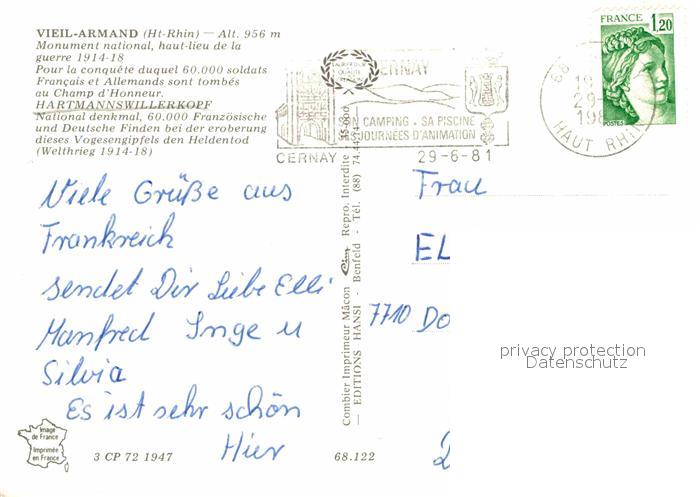 VIEIL-ARMAND (Ht-Rhin) — Alt. 956 m
Monument national, haut-lieu de la
guerre 1914-18
Pour la conquête duquel 60.000 soldats
Français et Allemands sont tombés
au Champ d'Honneur.
HARTMANNSWILLERKOPF
National denkmal, 60.000 Französische
und Deutsche Finden bei der eroberung
dieses Vogesengipfels den Heldentod
(Welthrieg 1914-18)
CERNAY
CAMPING - SA PISCINE
SES JOURNÉES D'ANIMATION
CERNAY
29-6-81
68
HAUT RHIN
FRANCE 1,20
POSTES
Viele Grüße aus
Frankreich
sendet Dir Liebe Elli
Manfred Inge u
Silvia
Es ist sehr schön
Hier
Combier Imprimeur Mâcon Cim Repro. Interdite
— EDITIONS HANSI - Benfeld - Tél. (88)
Frau
EL
7710 Do
privacy protection
Datenschutz
Image
de France
Imprimée
en France
3 CP 72 1947
68.122